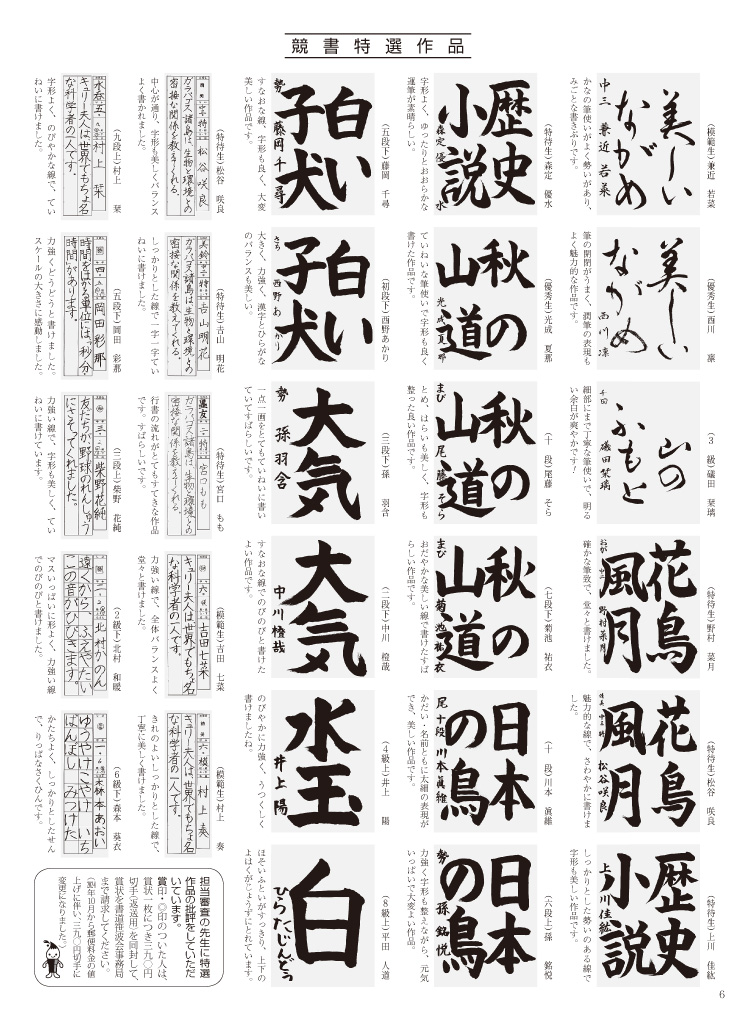 競書特選作品
美しい
ながめ
中三 兼近 若菜
(模範生)兼近 若菜
かなの筆使いがよく勢いがあり、
みごとな書きぶりです。
美しい
ながめ
西川 凛
(優秀生)西川 凛
筆の開閉がうまく、潤筆の表現も
よく魅力的な作品です。
山の
ふもと
千田 礒田 栞璃
(3 級)礒田 栞璃
細部にまで丁寧な筆使いで、明る
い余白が爽やかです!
花鳥
風月
野村 菜月
(特待生)野村 菜月
確かな筆致で、堂々と書けました。
花鳥
風月
松谷 咲良
(特待生)松谷 咲良
魅力的な線で、さわやかに書けま
した。
歴史
小説
上川 佳紘
(特待生)上川 佳紘
しっかりとした勢いのある線で
字形も美しい作品です。
歴史
小説
森定 優水
(特待生)森定 優水
字形よく、ゆったりとおおらかな
運筆が素晴らしい。
秋の
山道
光成 夏那
(優秀生)光成 夏那
ていねいな筆使いで字形も良く
書けた作品です。
秋の
山道
まび 尾藤 そら
(十 段)尾藤 そら
とめ、はらいも美しく、字形も
整った良い作品です。
秋の
山道
まび 菊池 祐衣
(七段下)菊池 祐衣
おだやかな美しい線で書けたすば
らしい作品です。
日本
の鳥
尾 十段 川本 眞維
(十 段)川本 眞維
かだい・名前ともに太細の表現が
でき、美しい作品です。
日本
の鳥
勢 孫 銘悦
(六段上)孫 銘悦
力強く字形も整えながら、元気
いっぱいで大変よい作品。
白い
子犬
勢 藤岡 千尋
(五段下)藤岡 千尋
すなおな線、字形も良く、大変
美しい作品です。
白い
子犬
さち 西野 あかり
(初段下)西野あかり
大きく、力強く、漢字とひらがな
のバランスも美しい。
大気
勢 孫 羽含
(三段下)孫 羽含
一点一画をとてもていねいに書い
ていてすばらしいです。
大気
中川 橙哉
(二段下)中川 橙哉
すなおな線でのびのびと書けた
よい作品です。
水玉
井上 陽
(4級上)井上 陽
のびやかに力強く、うつくしく
書けましたね。
白
ひらたじんどう
(8級上)平田 人道
ほそいふといがすっきり、上下の
よはくがじょうずにとれています。
松谷咲良
ガラパゴス諸島は、生物と環境との
密接な関係を教えてくれる。
(特待生)松谷 咲良
中心が通り、字形も美しくバランス
よく書かれました。
吉山明花
ガラパゴス諸島は、生物と環境との
密接な関係を教えてくれる。
(特待生)吉山 明花
しっかりとした線で一字一字てい
ねいに書けました。
宮口もも
ガラパゴス諸島は、生物と環境との
密接な関係を教えてくれる。
(特待生)宮口 もも
行書の流れがとてもすてきな作品
です。すばらしいです。
吉田七菜
キュリー夫人は世界でもちょ名
な科学者の一人です。
(模範生)吉田 七菜
力強い線で、全体バランスよく
堂々と書けました。
村上奏
キュリー夫人は、世界でもちょ名
な科学者の一人です。
(模範生)村上 奏
きれのよいしっかりとした線で、
丁寧に美しく書けました。
村上栞
キュリー夫人は世界でもちょ名
な科学者の一人です。
(九段上)村上 栞
字形よく、のびやかな線で、てい
ねいに書けました。
岡田彩那
時間をはかる単位には、秒・分・
時間があります。
(五段下)岡田 彩那
力強くどうどうと書けました。
スケールの大きさに感動しました。
柴野花純
友だちが、野球のれんしゅう
にさそってくれました。
(二段上)柴野 花純
力強い線で、字形も美しく、てい
ねいに書けています。
北村かのん
遠くから、ふえやたい
この音がひびきます。
(2級下)北村 和暖
マスいっぱいに形よく、力強い線
でのびのびと書けました。
森本あおい
ゆうやけこやけ いち
ばんぼし みつけた
(6級下)森本 葵衣
かたちよく、しっかりとしたせん
で、りっぱなさくひんです。
担当審査の先生に特選
作品の批評をしていただ
いています。
賞印・◎印のついた人は、
賞状一枚につき三九〇円
切手(返送用)を同封して、
賞状を書道笹波会事務局
まで請求してください。
(2024年10月から郵便料金の値
上げに伴い、三九〇円切手に
変更になりました。)
6